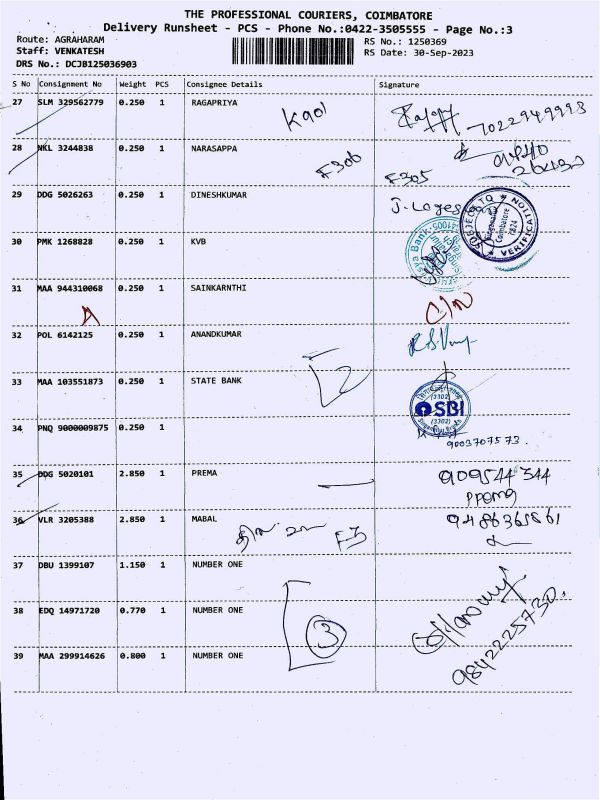 THE PROFESSIONAL COURIERS, COIMBATORE
Delivery Runsheet - PCS - Phone No.:0422-3505555 - Page No.:3
Route: AGRAHARAM RS No.: 1250369
Staff: VENKATESH RS Date: 30-Sep-2023
DRS No.: DCJB125036903
S No Consignment No Weight PCS Consignee Details Signature
27 SLM 329562779 0.250 1 RAGAPRIYA K901
7022949993
28 NKL 3244838 0.250 1 NARASAPPA F306
F305
29 DDG 5026263 0.250 1 DINESHKUMAR
SUBJECT TO VERIFICATION
Coimbatore
30 PMK 1268828 0.250 1 KVB
31 MAA 944310068 0.250 1 SAINKARNTHI
32 POL 6142125 0.250 1 ANANDKUMAR
33 MAA 103551873 0.250 1 STATE BANK 2
(3302)
SBI
(3302)
34 PNQ 9000009875 0.250 1
9003707573.
35 DDG 5020101 2.850 1 PREMA
909544344
36 VLR 3205388 2.850 1 MABAL F3
37 DBU 1399107 1.150 1 NUMBER ONE
38 EDQ 14971720 0.770 1 NUMBER ONE 3
9842225730.
39 MAA 299914626 0.800 1 NUMBER ONE